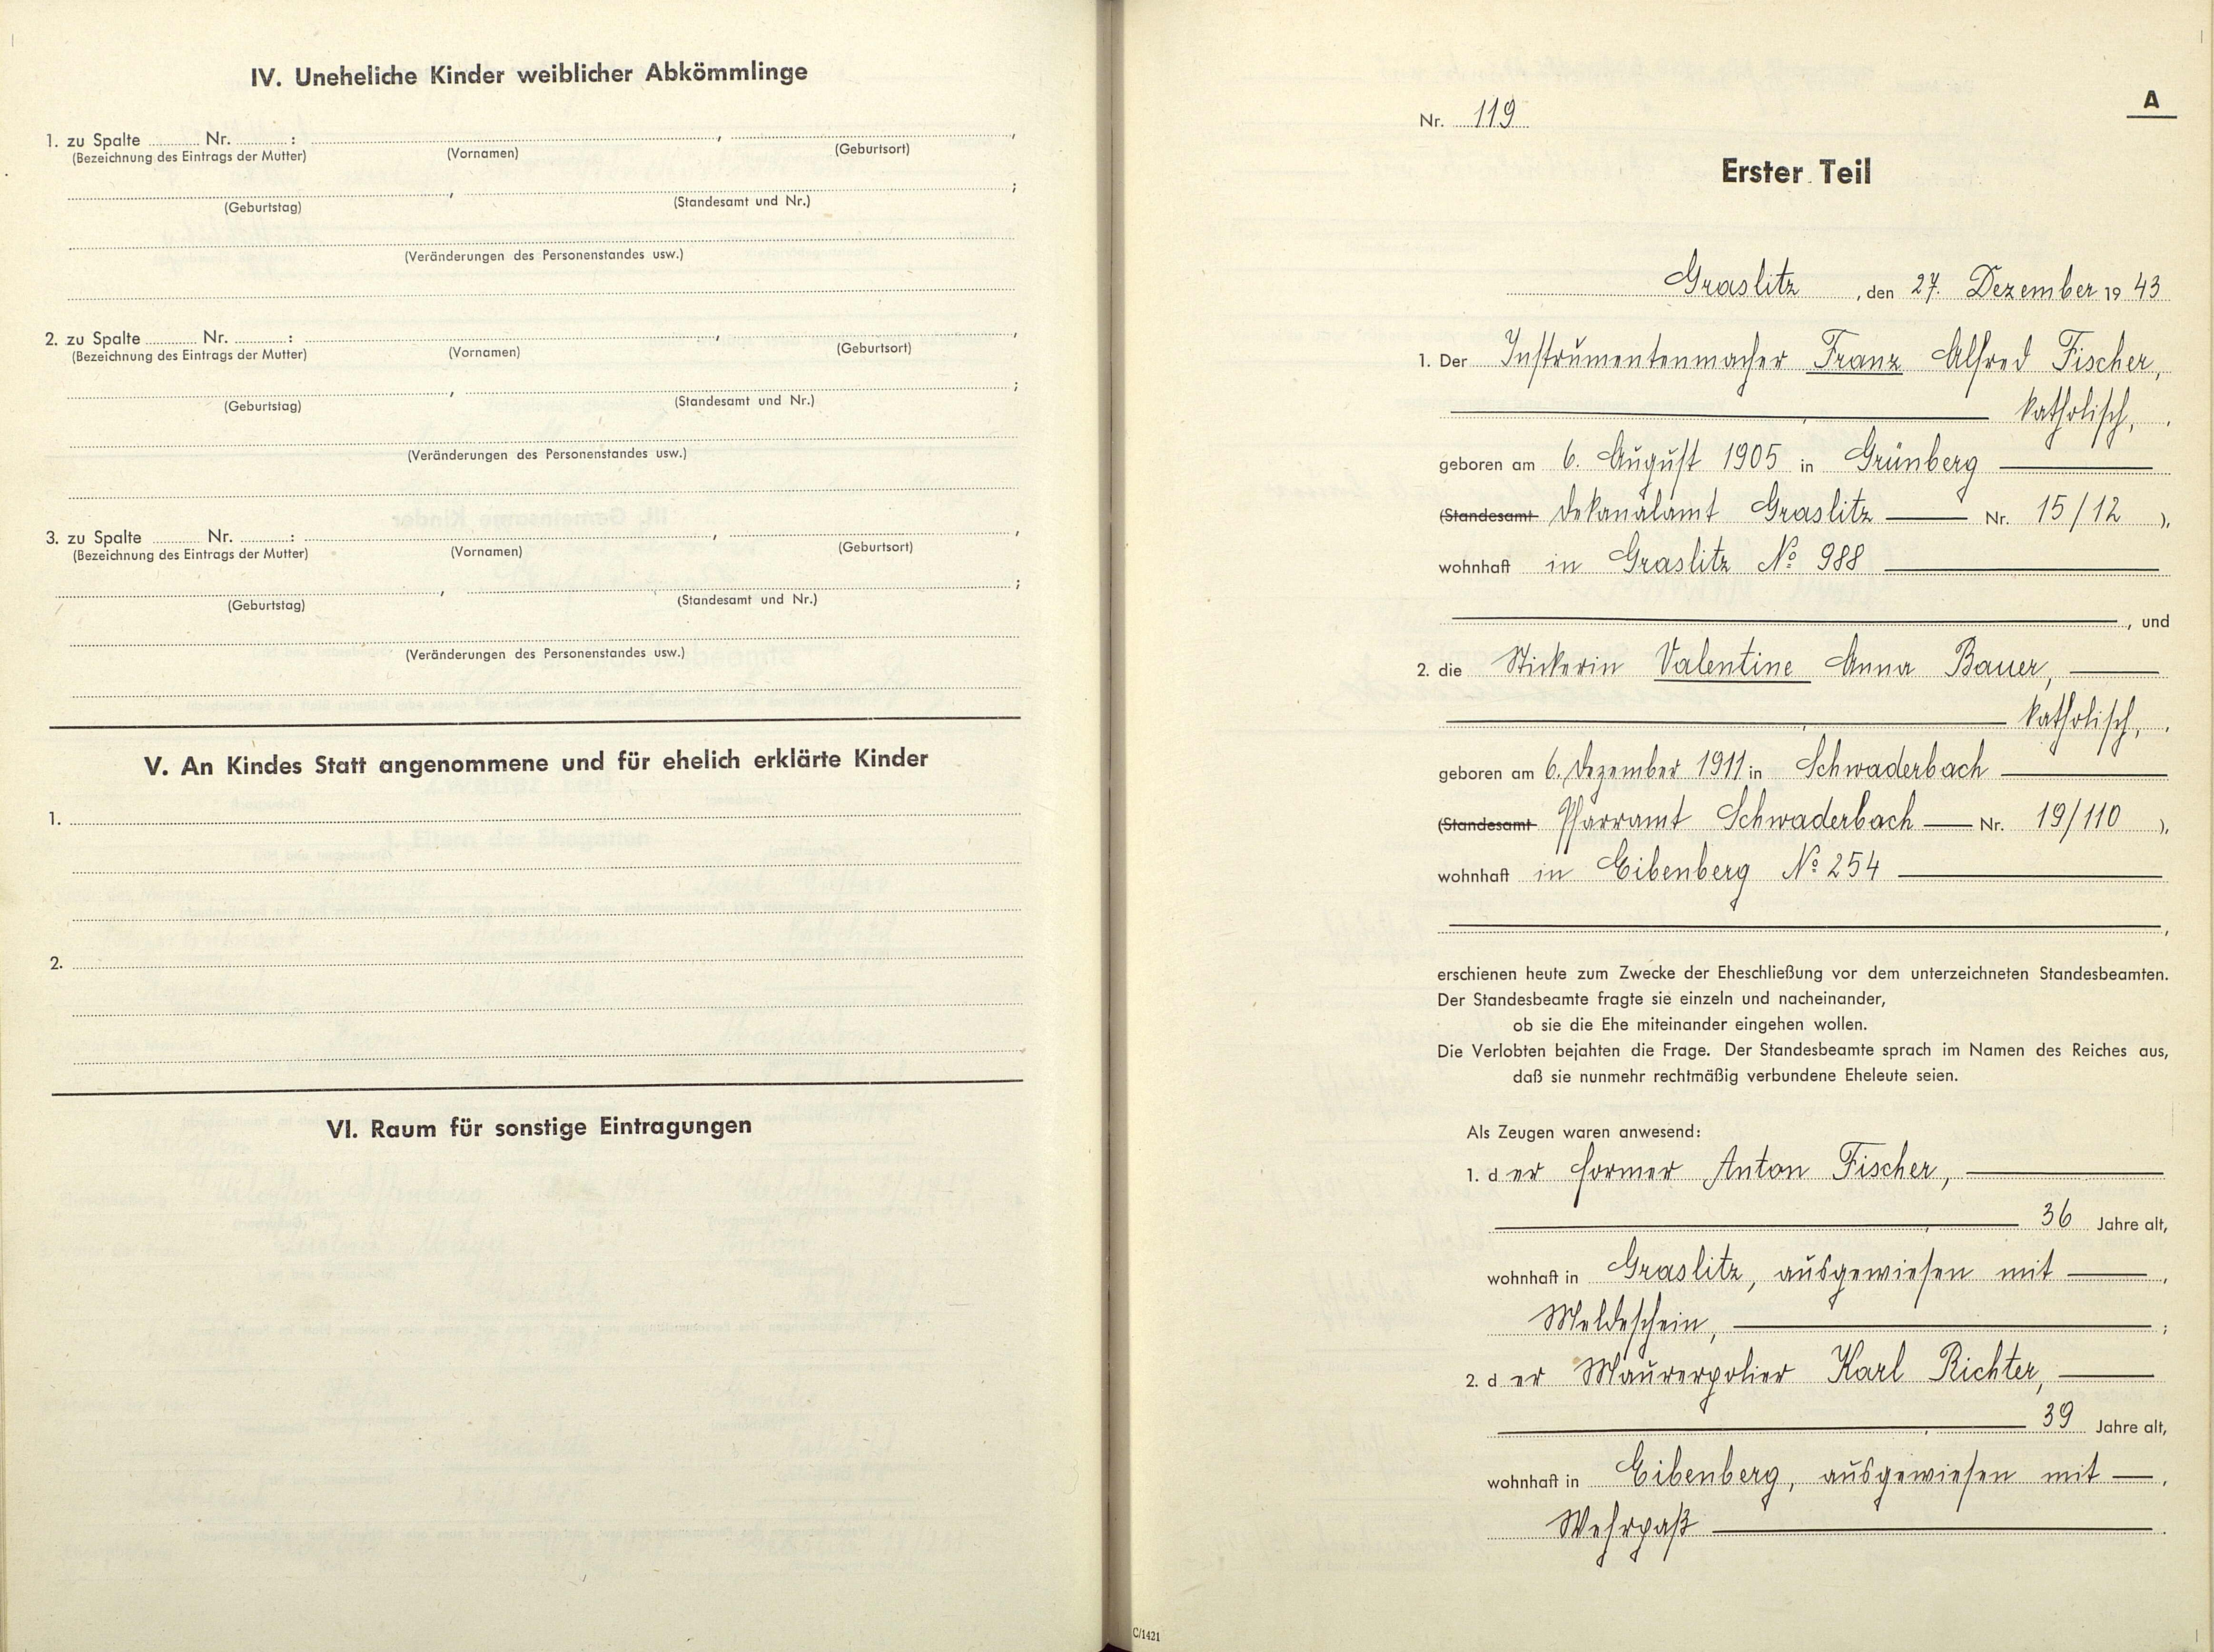 IV. Uneheliche Kinder weiblicher Abkömmlinge
1. zu Spalte Nr. : , ,
(Bezeichnung des Eintrags der Mutter) (Vornamen) (Geburtsort)
, ;
(Geburtstag) (Standesamt und Nr.)
(Veränderungen des Personenstandes usw.)
2. zu Spalte Nr. : , ,
(Bezeichnung des Eintrags der Mutter) (Vornamen) (Geburtsort)
, ;
(Geburtstag) (Standesamt und Nr.)
(Veränderungen des Personenstandes usw.)
3. zu Spalte Nr. : , ,
(Bezeichnung des Eintrags der Mutter) (Vornamen) (Geburtsort)
, ;
(Geburtstag) (Standesamt und Nr.)
(Veränderungen des Personenstandes usw.)
V. An Kindes Statt angenommene und für ehelich erklärte Kinder
1.
2.
VI. Raum für sonstige Eintragungen
A
Nr. 119
Erster Teil
Graslitz, den 27. Dezember 19 43
1. Der Instrumentenmacher Franz Alfred Fischer,
katholisch,
geboren am 6. August 1905 in Grünberg
(Standesamt Dekanalamt Graslitz Nr. 15/12 ),
wohnhaft in Graslitz No 988
, und
2. die Stickerin Valentine Anna Bauer,
katholisch,
geboren am 6. Dezember 1911 in Schwaderbach
(Standesamt Pfarramt Schwaderbach Nr. 19/110 ),
wohnhaft in Eibenberg No 254
,
erschienen heute zum Zwecke der Eheschließung vor dem unterzeichneten Standesbeamten.
Der Standesbeamte fragte sie einzeln und nacheinander,
ob sie die Ehe miteinander eingehen wollen.
Die Verlobten bejahten die Frage. Der Standesbeamte sprach im Namen des Reiches aus,
daß sie nunmehr rechtmäßig verbundene Eheleute seien.
Als Zeugen waren anwesend:
1. der Former Anton Fischer,
36 Jahre alt,
wohnhaft in Graslitz, ausgewiesen mit ,
Meldeschein, ;
2. der Maurerpolier Karl Richter,
39 Jahre alt,
wohnhaft in Eibenberg, ausgewiesen mit ,
Wehrpaß .
C/1421